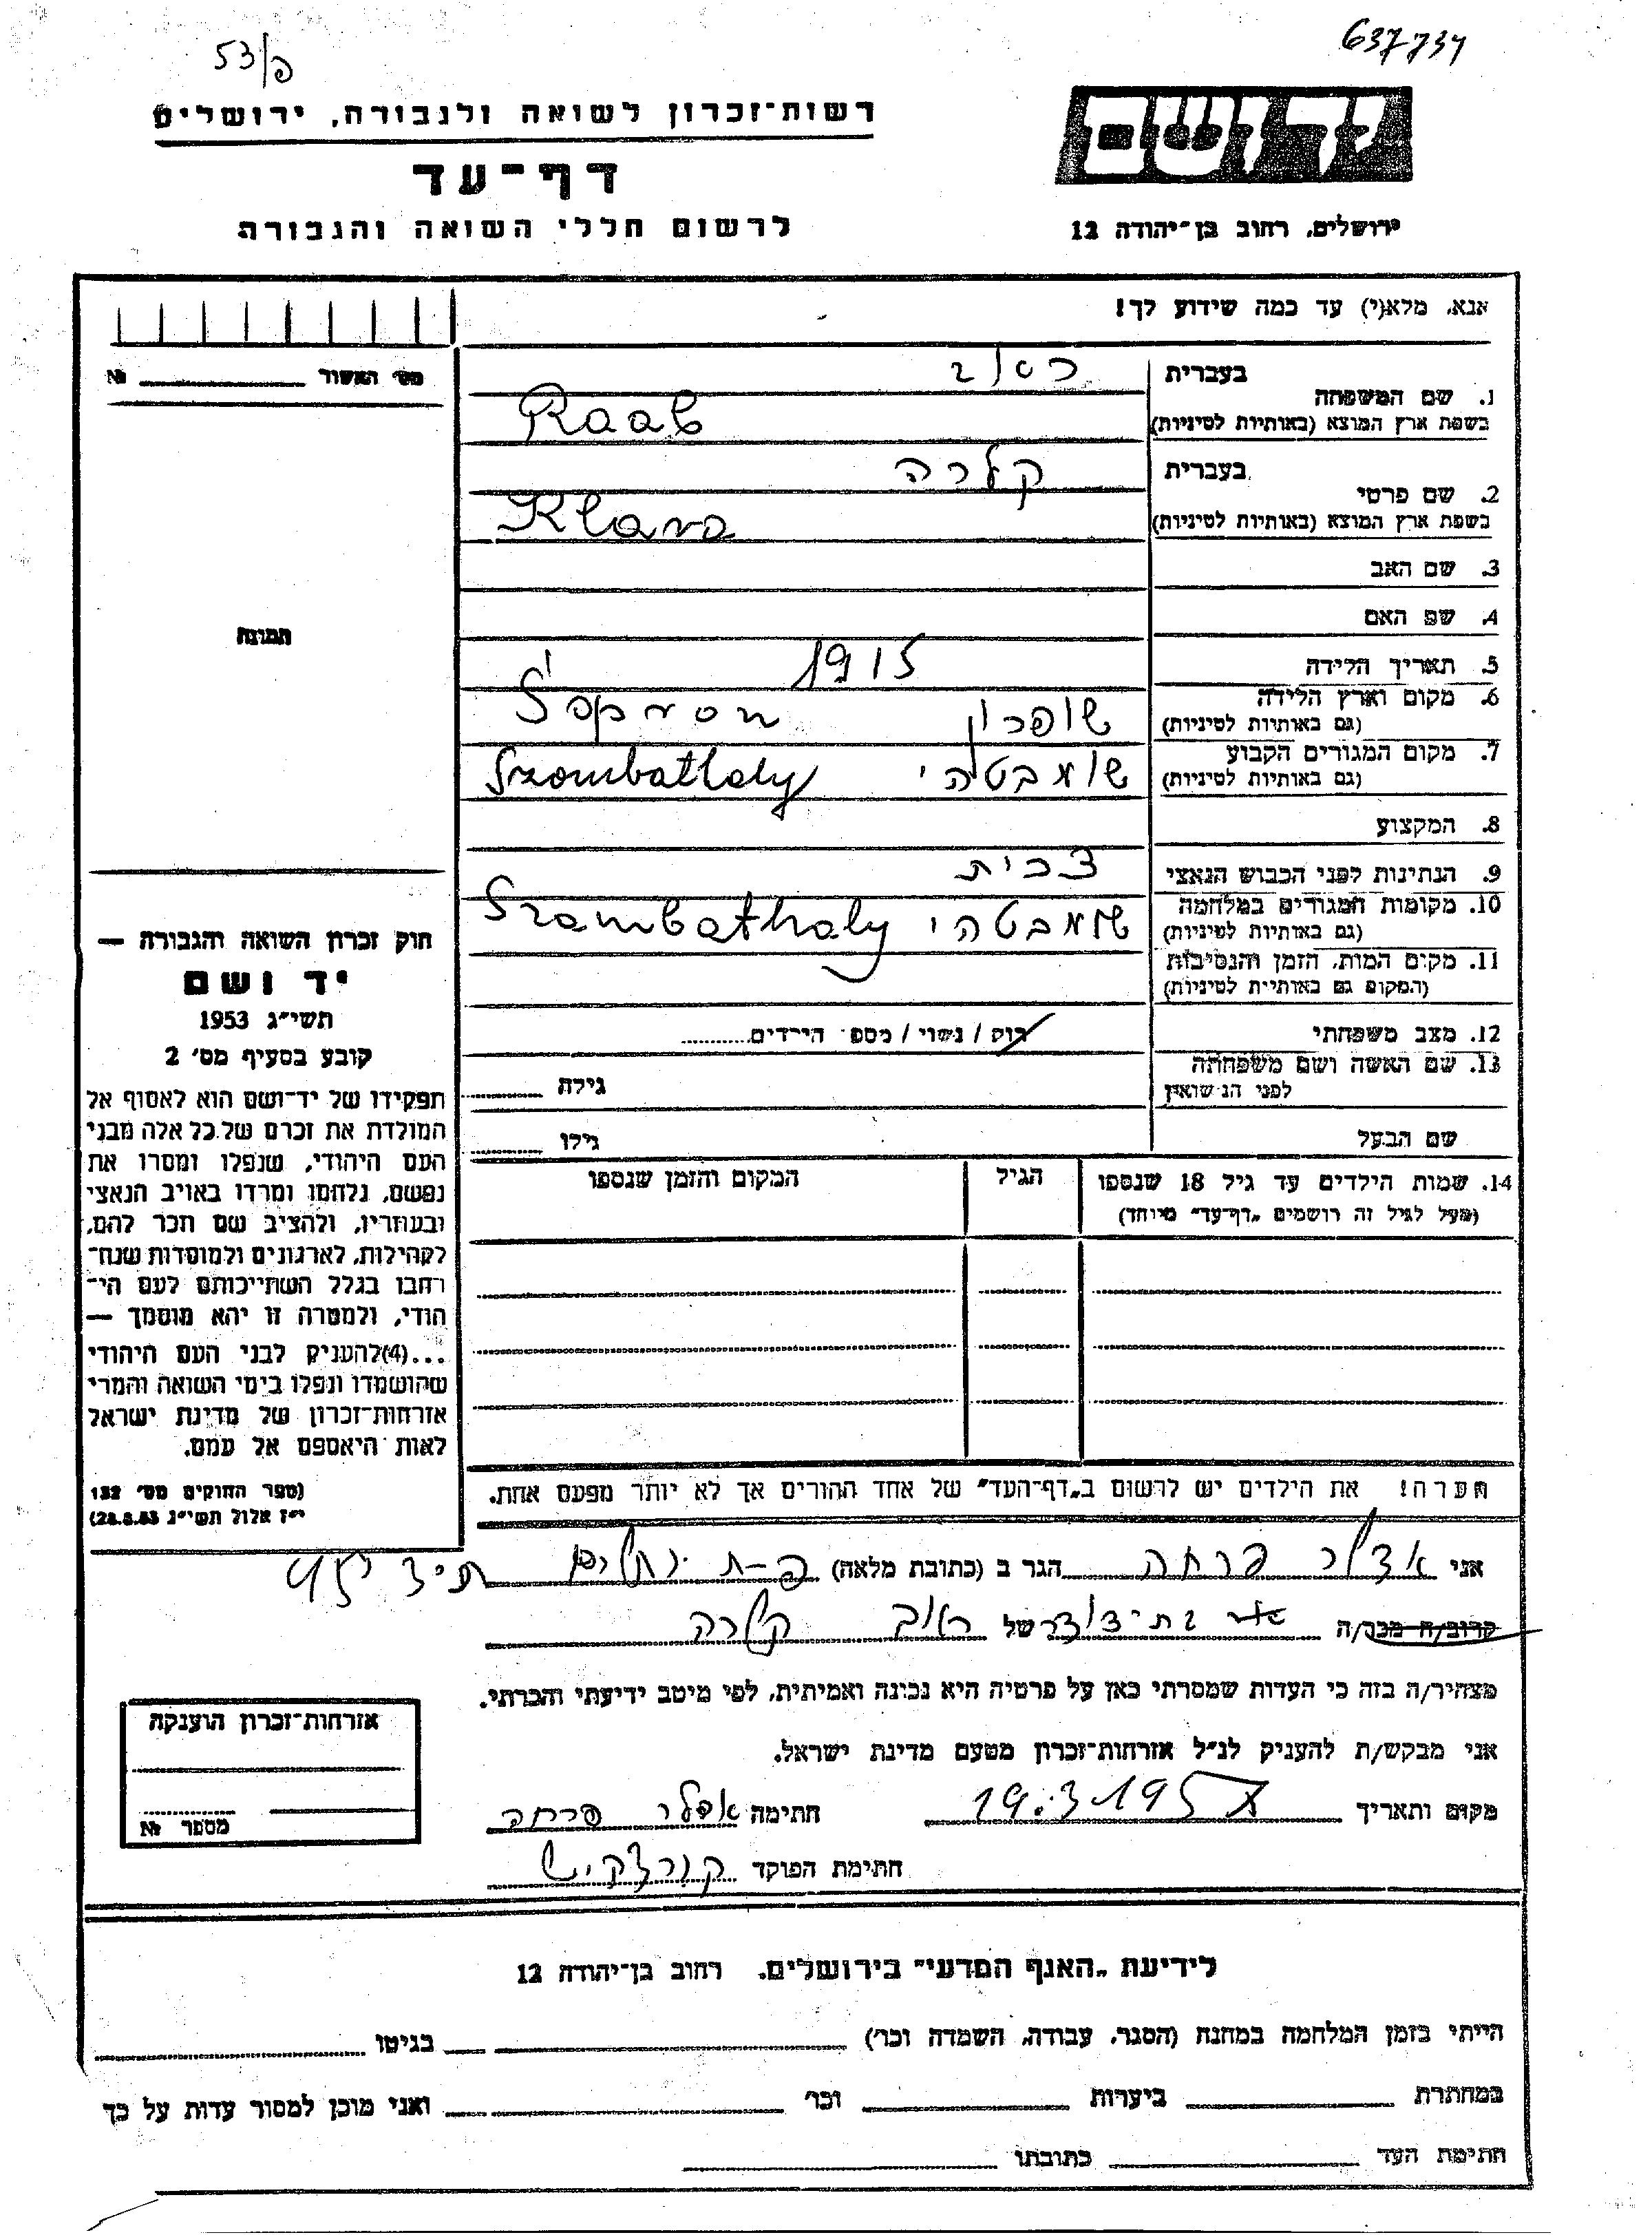 637734
פ/53
יד ושם
רשות־זכרון לשואה ולגבורה, ירושלים
דף־עד
לרשום חללי השואה והגבורה
ירושלים, רחוב בן־יהודה 12
אנא, מלא(י) עד כמה שידוע לך!
מס׳ האשור № 
1. שם המשפחה
בעברית
ראב
בשפת ארץ המוצא (באותיות לטיניות)
Raab
2. שם פרטי
בעברית
קלרה
בשפת ארץ המוצא (באותיות לטיניות)
Klara
3. שם האב
4. שם האם
תמונה
5. תאריך הלידה
1915
6. מקום וארץ הלידה
(גם באותיות לטיניות)
שופרון Sopron
7. מקום המגורים הקבוע
(גם באותיות לטיניות)
שומבטהי Szombathaly
8. המקצוע
9. הנתינות לפני הכבוש הנאצי
10. מקומות המגורים במלחמה
(גם באותיות לטיניות)
שומבטהי Szombathaly
11. מקום המות, הזמן והנסיבות
(המקום גם באותיות לטיניות)
12. מצב משפחתי
רוק / נשוי / מספר הילדים
13. שם האשה ושם משפחתה
לפני הנישואין
גילה
שם הבעל
גילו
14. שמות הילדים עד גיל 18 שנספו
(מעל לגיל זה רושמים „דף־עד" מיוחד)
הגיל
המקום והזמן שנספו
חוק זכרון השואה והגבורה —
יד ושם
תשי״ג 1953
קובע בסעיף מס׳ 2
תפקידו של יד־ושם הוא לאסוף אל
המולדת את זכרם של כל אלה מבני
העם היהודי, שנפלו ומסרו את
נפשם, נלחמו ומרדו באויב הנאצי
ובעוזריו, ולהציב שם וזכר להם,
לקהילות, לארגונים ולמוסדות שנח־
רבו בגלל השתייכותם לעם הי־
הודי, ולמטרה זו יהא מוסמך —
...(4)להעניק לבני העם היהודי
שהושמדו ונפלו בימי השואה והמרי
אזרחות־זכרון של מדינת ישראל
לאות היאספם אל עמם.
(ספר החוקים מס׳ 132
י״ז אלול תשי״ג 28.8.53)
הערה! את הילדים יש לרשום ב„דף־העד" של אחד ההורים אך לא יותר מפעם אחת.
אני אדלר פרחה הגר ב (כתובת מלאה)
קרוב/ה מכר/ה בת־דוד של ראב קלרה
מצהיר/ה בזה כי העדות שמסרתי כאן על פרטיה היא נכונה ואמיתית, לפי מיטב ידיעתי והכרתי.
אני מבקש/ת להעניק לנ״ל אזרחות־זכרון מטעם מדינת ישראל.
מקום ותאריך 19.3.1957 חתימה אדלר פרחה
חתימת הפוקד
אזרחות־זכרון הוענקה
מספר №
לידיעת „האגף המדעי" בירושלים, רחוב בן־יהודה 12
הייתי בזמן המלחמה במחנה (הסגר, עבודה, השמדה וכו׳) בגיטו
במחתרת ביערות וכו׳ ואני מוכן למסור עדות על כך
חתימת העד כתובתו